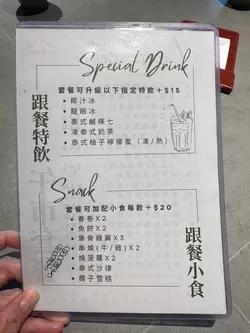 Special Drink
套餐可升級以下指定特飲 +$15
• 椰汁冰
• 龍眼冰
• 泰式鹹檸七
• 凍泰式奶茶
• 泰式柚子檸檬蜜 (凍/熱)
跟餐特飲
Snack
套餐可加配小食每款 +$20
• 春卷X2
• 魚餅X2
• 單骨雞翼X3
• 串燒(牛/雞)X2
• 燒菠蘿X2
• 泰式沙律
• 椰子雪糕
跟餐小食